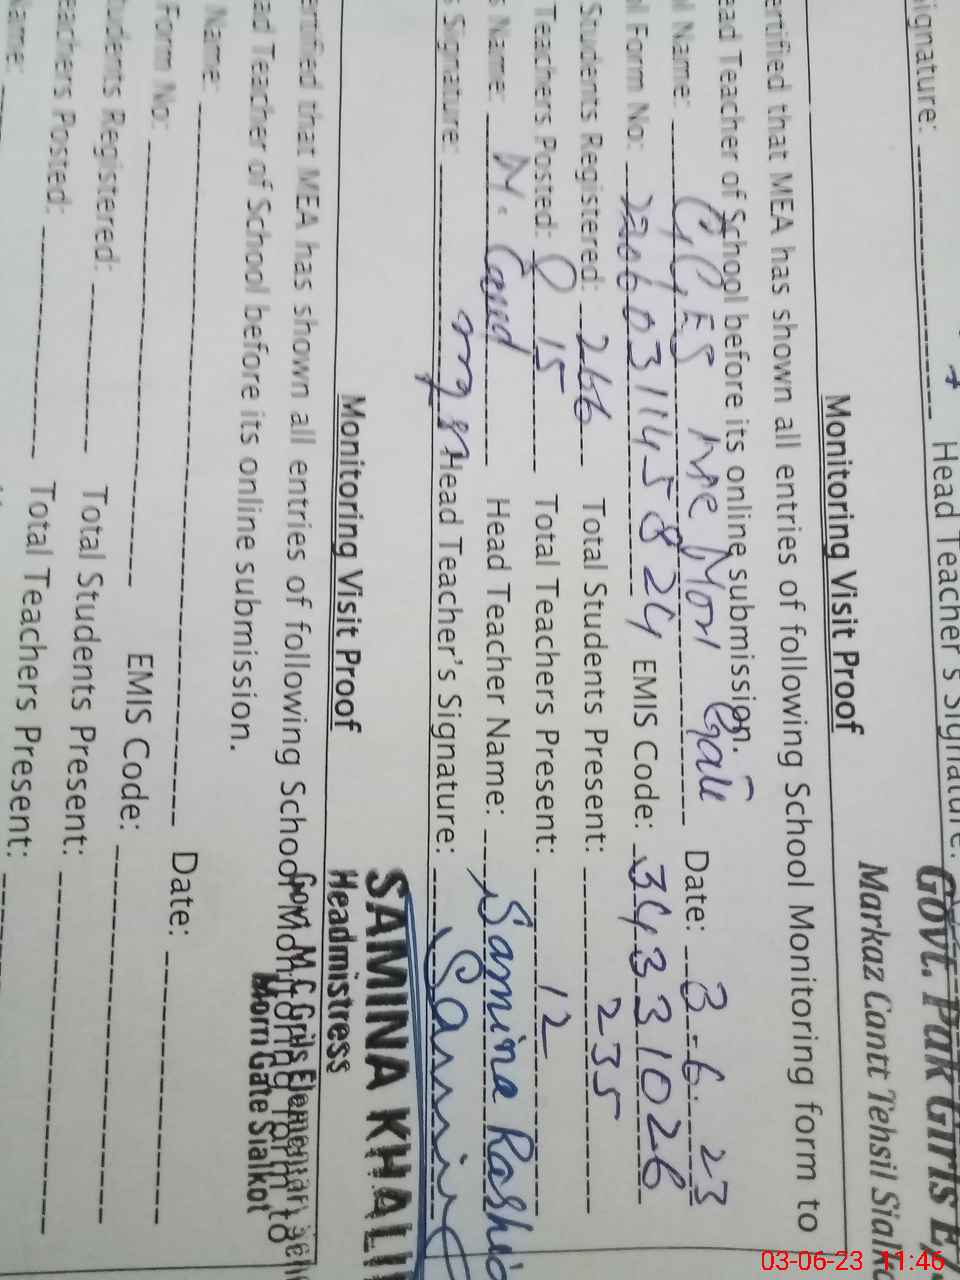 ignature: Head Teacher's Signature:
Govt. Pak Girls E
Markaz Cantt Tehsil Sialk
Monitoring Visit Proof
ertified that MEA has shown all entries of following School Monitoring form to
ead Teacher of School before its online submission.
l Name: GGES Gate Date: 3-6-23
l Form No: 2206031145824 EMIS Code: 34331026
Students Registered: 266 Total Students Present: 235
Teachers Posted: 15 Total Teachers Present: 12
s Name: M. Head Teacher Name: Samina Rashid
s Signature: Head Teacher's Signature: Samina
SAMINA KHALI
Headmistress
Govt. M.C Grils Elementary Sch
Morri Gate Sialkot
Monitoring Visit Proof
ertified that MEA has shown all entries of following School Monitoring form to
ad Teacher of School before its online submission.
Name: Date:
Form No: EMIS Code:
tudents Registered: Total Students Present:
eachers Posted: Total Teachers Present:
Name:
03-06-23 11:46